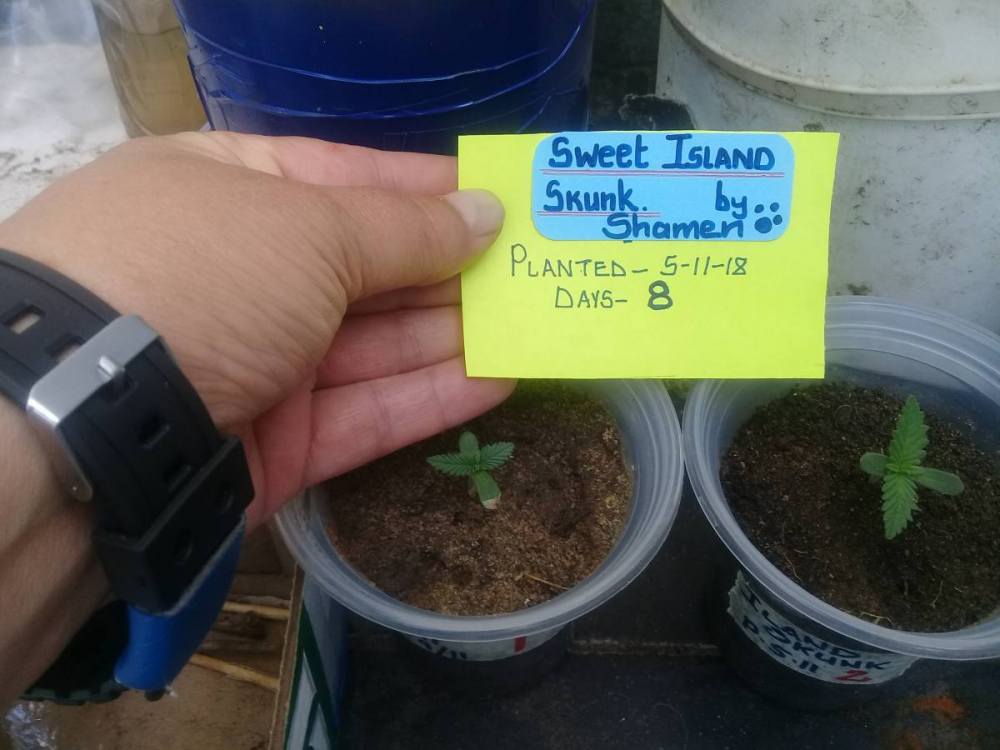 Sweet ISLAND
Skunk. by
Shamen
PLANTED- 5-11-18
DAYS- 8
1
ISLAND
SKUNK
D.5-11 2